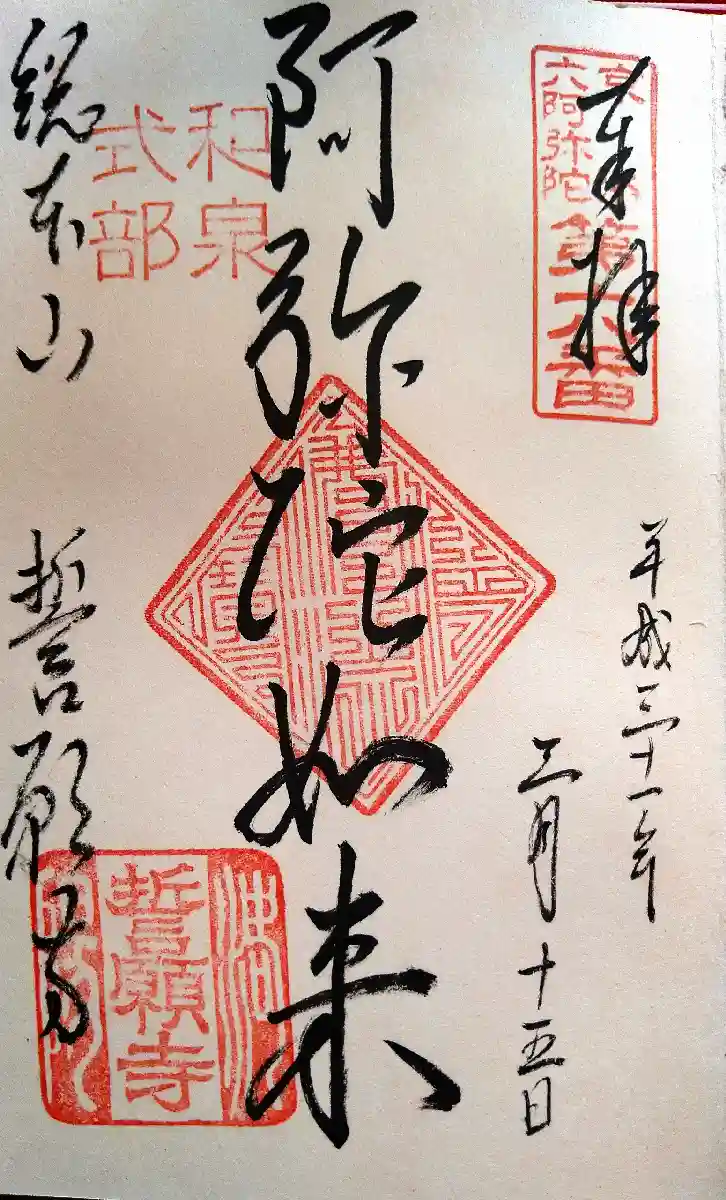 奉拝
京
六阿弥陀
第六番
平成三十一年
三月十五日
阿弥陀如来
和泉
式部
総本山
誓願寺
誓願寺